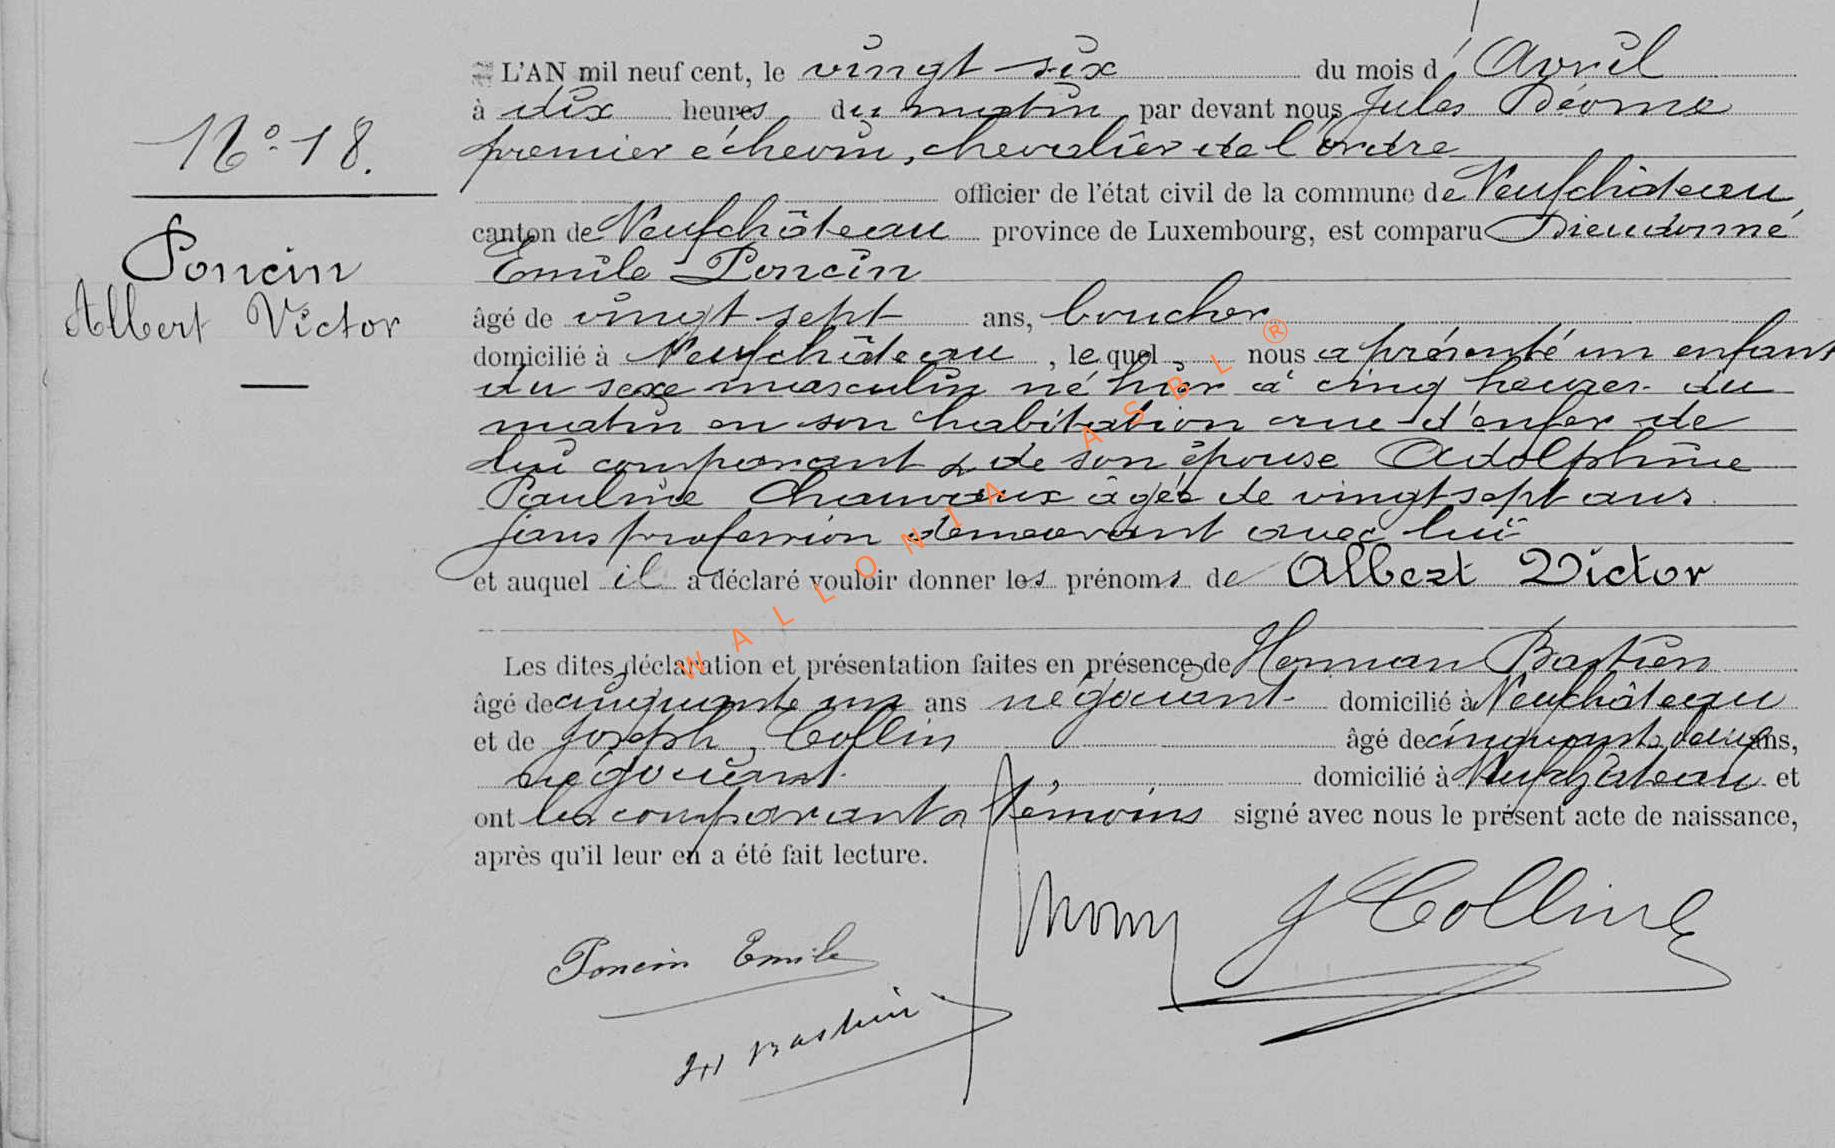 N° 18.
Poncin
Albert Victor
L'AN mil neuf cent, le vingt six du mois d'Avril
à dix heures du matin par devant nous, Jules
premier échevin, chevalier de l'ordre
officier de l'état civil de la commune de Neufchâteau
canton de Neufchâteau province de Luxembourg, est comparu Dieudonné
Emile Poncin
âgé de vingt sept ans, boucher
domicilié à Neufchâteau, lequel nous a présenté un enfant
du sexe masculin né hier à cinq heures du
matin en son habitation rue d'enfer de
lui comparant & de son épouse Adolphine
Pauline Chauvaux âgée de vingt sept ans
sans profession demeurant avec lui
et auquel il a déclaré vouloir donner les prénoms de Albert Victor
Les dites déclaration et présentation faites en présence de Herman Bastien
âgé de cinquante un ans négociant domicilié à Neufchâteau
et de Joseph Collin âgé de cinquante deux ans,
négociant domicilié à Neufchâteau et
ont les comparant & témoins signé avec nous le présent acte de naissance,
après qu'il leur en a été fait lecture.
J Collin
Poncin Emile
H Bastien
WALLONIA ASBL ®